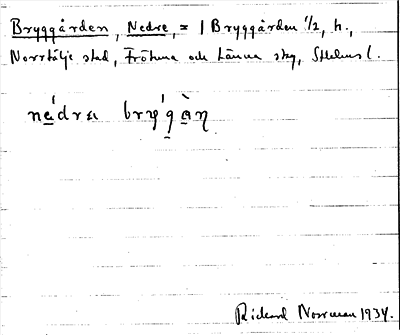 Bryggården, Nedre, = 1 Bryggården 1/2, h.,
Norrtälje stad, Frötuna och Länna skg, Sthlms l.
Rickard Norrman 1934.